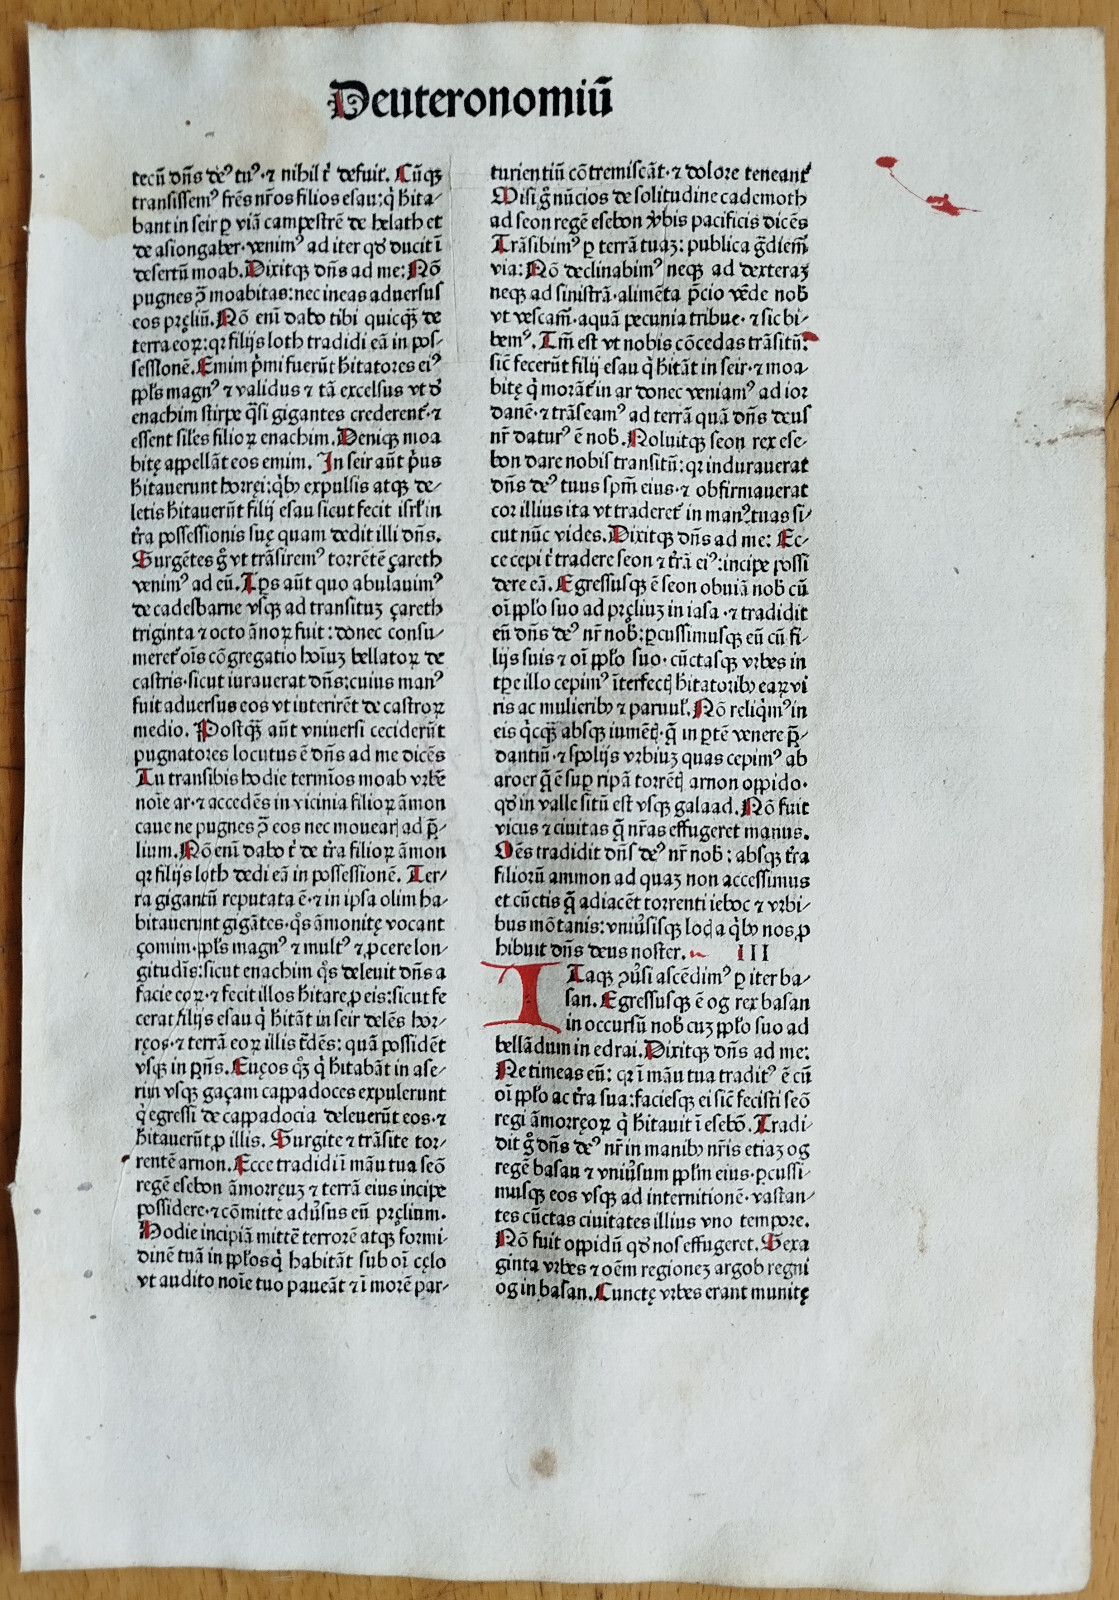 Deuteronomiū
tecū dn̄s deꝰ tuꝰ·⁊ nihil t̄ defuit. Cūqꝫ
transissemꝰ frēs nr̄os filios esau:q̇ h̄ita-
bant in seir ꝑ viā campestrē de helath et
de asiongaber·venimꝰ ad iter qd̄ ducit ī
desertū moab. Dixitqꝫ dn̄s ad me: Nō
pugnes ꝯ̄ moabitas: nec ineas aduersus
eos pręliū. Nō enī dabo tibi quicqꝫ̄ de
terra eoꝝ: qꝛ filijs loth tradidi eā in pos-
sessionē. Emim pͥmi fuerūt h̄itatores eiꝰ
pp̄ls magnꝰ ⁊ validus ⁊ tā excelsus vt d̄
enachim stirpe q̄si gigantes crederent᷑·⁊
essent sil̄es filioꝝ enachim. Deniqꝫ moa
bitę appellāt eos emim. In seir aūt pͥus
h̄itauerunt horręi:qͥbꝰ expulsis atqꝫ de-
letis h̄itauerūt filij esau sicut fecit isrl̄ in
tr̄a possessionis suę quam dedit illi dn̄s.
Surgētes gͦ vt trāsiremꝰ torrētē çareth
venimꝰ ad eū. Tp̄s aūt quo ābulauimꝰ
de cadesbarne vsqꝫ ad transituꝫ çareth
triginta ⁊ octo ānoꝝ fuit: donec consu-
meret᷑ oīs cōgregatio hoīuꝫ bellatoꝝ de
castris·sicut iurauerat dn̄s:cuius manꝰ
fuit aduersus eos vt interirēt de castroꝝ
medio. Postqꝫ̄ aūt vniuersi ceciderūt
pugnatores locutus ē dn̄s ad me dicēs
Tu transibis hodie termīos moab vrbē
noīe ar·⁊ accedēs in vicinia filioꝝ āmon
caue ne pugnes ꝯ̄ eos nec mouearꝭ ad p̄-
lium. Nō enī dabo t̄ de tr̄a filioꝝ āmon
qꝛ filijs loth dedi eā in possessionē. Ter-
ra gigantū reputata ē·⁊ in ipsa olim ha-
bitauerunt gigātes·qͦs āmonitę vocant
çomim·pp̄ls magnꝰ ⁊ multꝰ ⁊ ꝓcere lon-
gitudīs: sicut enachim qͦs deleuit dn̄s a
facie eoꝝ·⁊ fecit illos h̄itare ꝓ eis: sicut fe
cerat filijs esau q̇ h̄itāt in seir delēs hor-
ręos·⁊ terrā eoꝝ illis t̄dēs: quā possidēt
vsqꝫ in p̄ns. Euęos qͦꝫ q̇ h̄itabāt in ase-
rim vsqꝫ gaçam cappadoces expulerunt
q̇ egressi de cappadocia deleuerūt eos·⁊
h̄itauerūt ꝓ illis. Surgite ⁊ trāsite tor-
rentē arnon. Ecce tradidi ī māu tua seō
regē esebon āmorręuꝫ ⁊ terrā eius incipe
possidere·⁊ cōmitte adūsus eū pręlium.
Hodie incipiā mittē terrorē atqꝫ formi-
dinē tuā in pp̄los q̇ habitāt sub oī cęlo
vt audito noīe tuo paueāt ⁊ ī morē par-
turientiū cōtremiscāt·⁊ dolore teneant᷑
Misi gͦ nūcios de solitudine cademoth
ad seon regē esebon v̄bis pacificis dicēs
Trāsibimꝰ ꝑ terrā tuaꝫ: publica gͣdiemͬ
via: Nō declinabimꝰ neqꝫ ad dexteraꝫ
neqꝫ ad sinistrā·alimēta p̄cio vēde nob̄
vt vescamͬ·aquā pecunia tribue·⁊ sic bi-
bemꝰ. Tm̄ est vt nobis cōcedas trāsitū:
sic̄ fecerūt filij esau q̇ h̄itāt in seir·⁊ moa-
bitę q̇ morāt᷑ in ar donec veniamꝰ ad ior
danē·⁊ trāseamꝰ ad terrā quā dn̄s deus
nr̄ daturꝰ ē nob̄. Noluitqꝫ seon rex ese-
bon dare nobis transitū: qꝛ indurauerat
dn̄s deꝰ tuus spm̄ eius·⁊ obfirmauerat
cor illius ita vt traderet᷑ in manꝰ tuas si-
cut nūc vides. Dixitqꝫ dn̄s ad me: Ec-
ce cepi t̄ tradere seon ⁊ tr̄ā eiꝰ: incipe possi
dere eā. Egressusqꝫ ē seon obuiā nob̄ cū
oī pp̄lo suo ad pręliuꝫ in iasa·⁊ tradidit
eū dn̄s deꝰ nr̄ nob̄: ꝑcussimusqꝫ eū cū fi-
lijs suis ⁊ oī pp̄lo suo·cūctasqꝫ vrbes in
tꝑe illo cepimꝰ īterfectꝭ h̄itatoribꝰ eaꝝ vi
ris ac mulieribꝰ ⁊ paruul̄. Nō reliqͥmꝰ in
eis qͥcqꝫ̄ absqꝫ iumētꝭ·q̄ in ꝑtē venere p̄-
dantiū·⁊ spolijs vrbiuꝫ quas cepimꝰ ab
aroer q̄ ē suꝑ ripā torrētꝭ arnon oppido·
qd̄ in valle sitū est vsqꝫ galaad. Nō fuit
vicus ⁊ ciuitas q̄ nr̄as effugeret manus.
Oēs tradidit dn̄s deꝰ nr̄ nob̄: absqꝫ tr̄a
filiorū ammon ad quaꝫ non accessimus
et cūctis q̄ adiacēt torrenti ieboc ⁊ vrbi-
bus mōtanis: vniūsisqꝫ locꝭ a qͥbꝰ nos ꝓ
hibuit dn̄s deus noster. III
ITaqꝫ ꝯūsi ascēdimꝰ ꝑ iter ba-
san. Egressusqꝫ ē og rex basan
in occursū nob̄ cuꝫ pp̄lo suo ad
bellādum in edrai. Dixitqꝫ dn̄s ad me:
Ne timeas eū: qꝛ ī māu tua traditꝰ ē cū
oī pp̄lo ac tr̄a sua: faciesqꝫ ei sic̄ fecisti seō
regi āmorręoꝝ q̇ h̄itauit ī esebō. Tradi-
dit gͦ dn̄s deꝰ nr̄ in manibꝰ nr̄is etiaꝫ og
regē basan ⁊ vniūsum pp̄lm eius·ꝑcussi-
musqꝫ eos vsqꝫ ad internitionē·vastan-
tes cūctas ciuitates illius vno tempore.
Nō fuit oppidū qd̄ nos effugeret. Sexa
ginta vrbes ⁊ oēm regioneꝫ argob regni
og in basan. Cunctę vrbes erant munitę